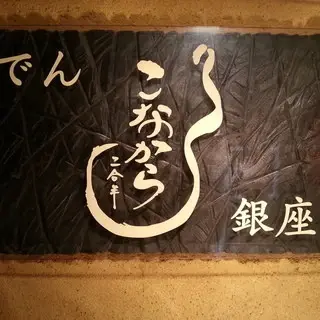 でん
こなから
二合半
銀座